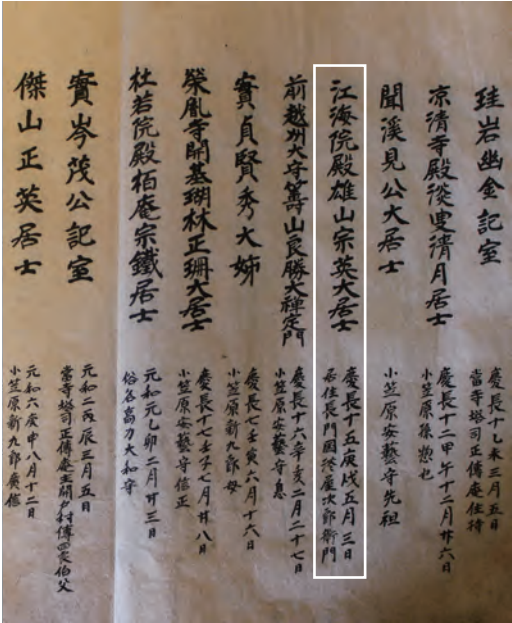 珪岩幽金記室
慶長十乙未三月五日
當寺塔司正傳庵住持
凉清寺殿淡叟清月居士
慶長十二甲午十二月廿六日
小笠原孫惣也
聞溪見公大居士
小笠原安藝守先祖
江海院殿雄山宗英大居士
慶長十五庚戌五月三日
居住長門國終庵次郎衛門
前越州大守籌山良勝大禅定門
慶長十六辛亥二月二十七日
小笠原安藝守息
實貞賢秀大姉
慶長七壬寅六月十六日
小笠原新九郎母
榮胤寺開基瑚林正珊大居士
慶長十七壬子七月廿八日
小笠原安藝守信正
杜若院殿栢庵宗鐵居士
元和元乙卯二月廿三日
俗名高力大和守
實岑茂公記室
元和二丙辰三月五日
當寺塔司正傳庵主開戸村傳四良伯父
傑山正英居士
元和六庚申八月十二日
小笠原新九郎廣信